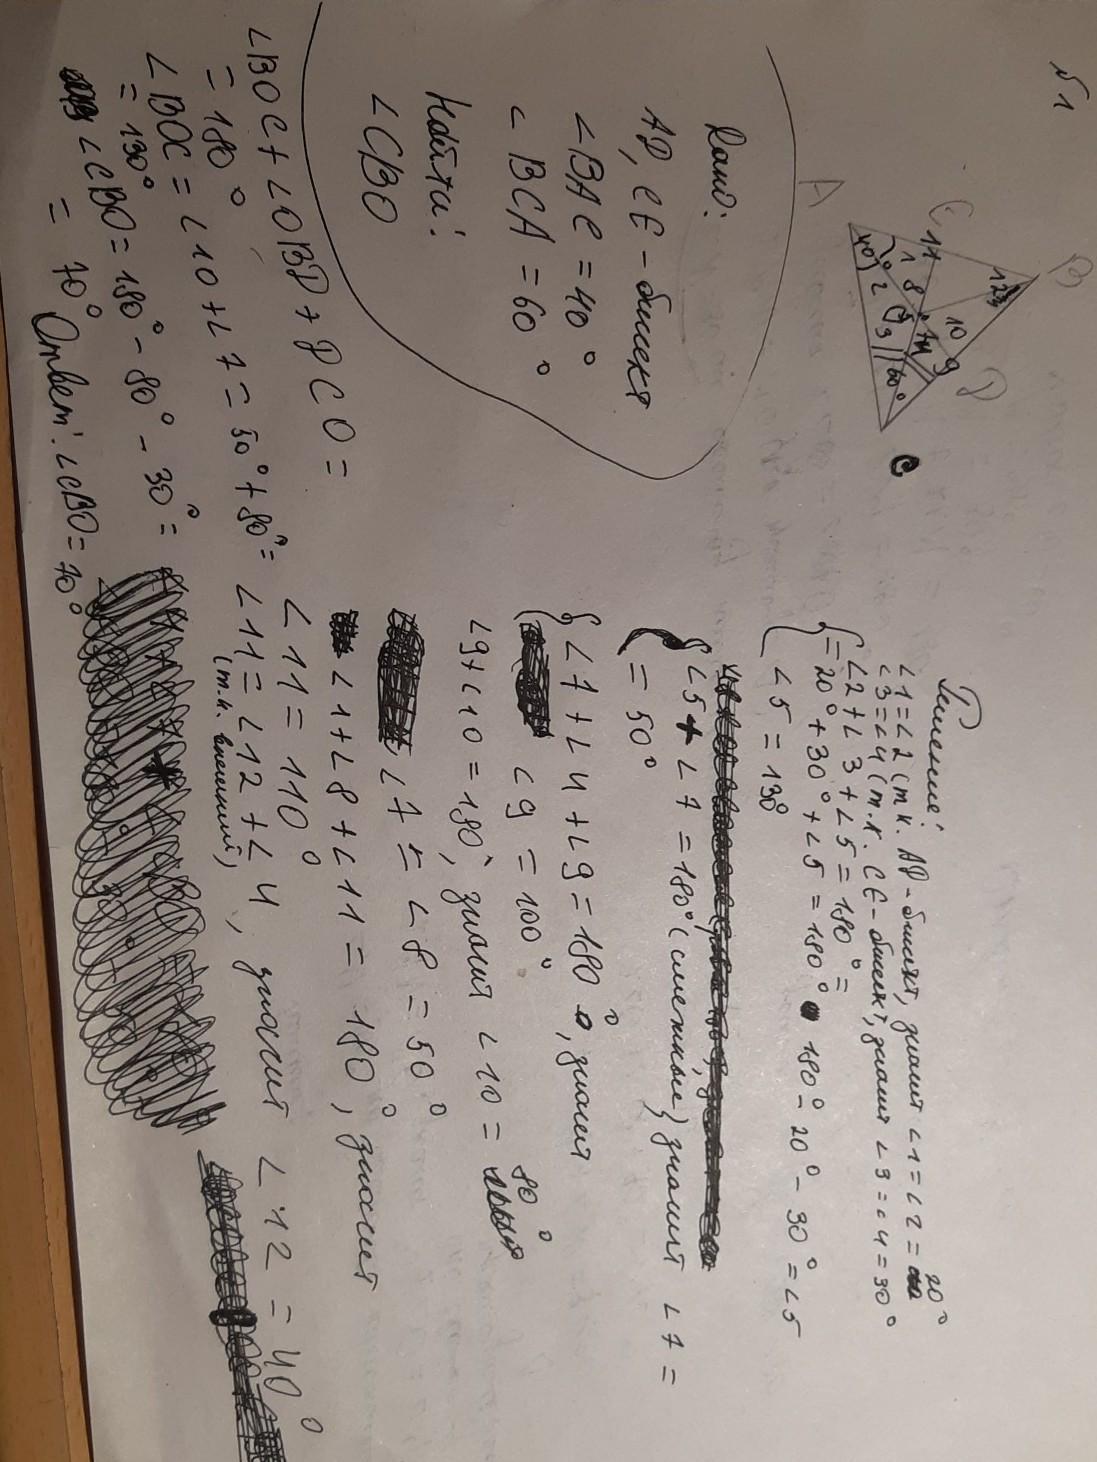 №1
A
E
B
D
C
11
1
8
12
10
9
40°
2
3
60°
Дано:
AD, CE - биссект
∠BAC = 40°
∠BCA = 60°
Найти:
∠CBO
Решение:
∠1=∠2 (т.к. AD-биссект, значит ∠1=∠2= 20°
∠3=∠4 (т.к. CE-биссект, значит ∠3=∠4=30°
∠2+∠3+∠5=180°=
=20°+30°+∠5=180° 180°-20°-30°=∠5
∠5=130°
∠5+∠7=180° (смежные) значит ∠7=
=50°
∠7+∠4+∠9=180°, значит
∠9=100°
∠9+∠10=180°, значит ∠10= 80°
∠7=∠8=50°
∠1+∠8+∠11=180°, значит
∠11=110°
∠11=∠12+∠4, значит ∠12=40°
(т.к. внешний)
∠BOC+∠OBD+DCO=
=180°
∠BOC=∠10+∠7=50°+80°=
=130°
∠CBO=180°-80°-30°=
=70°
Ответ: ∠CBO=70°